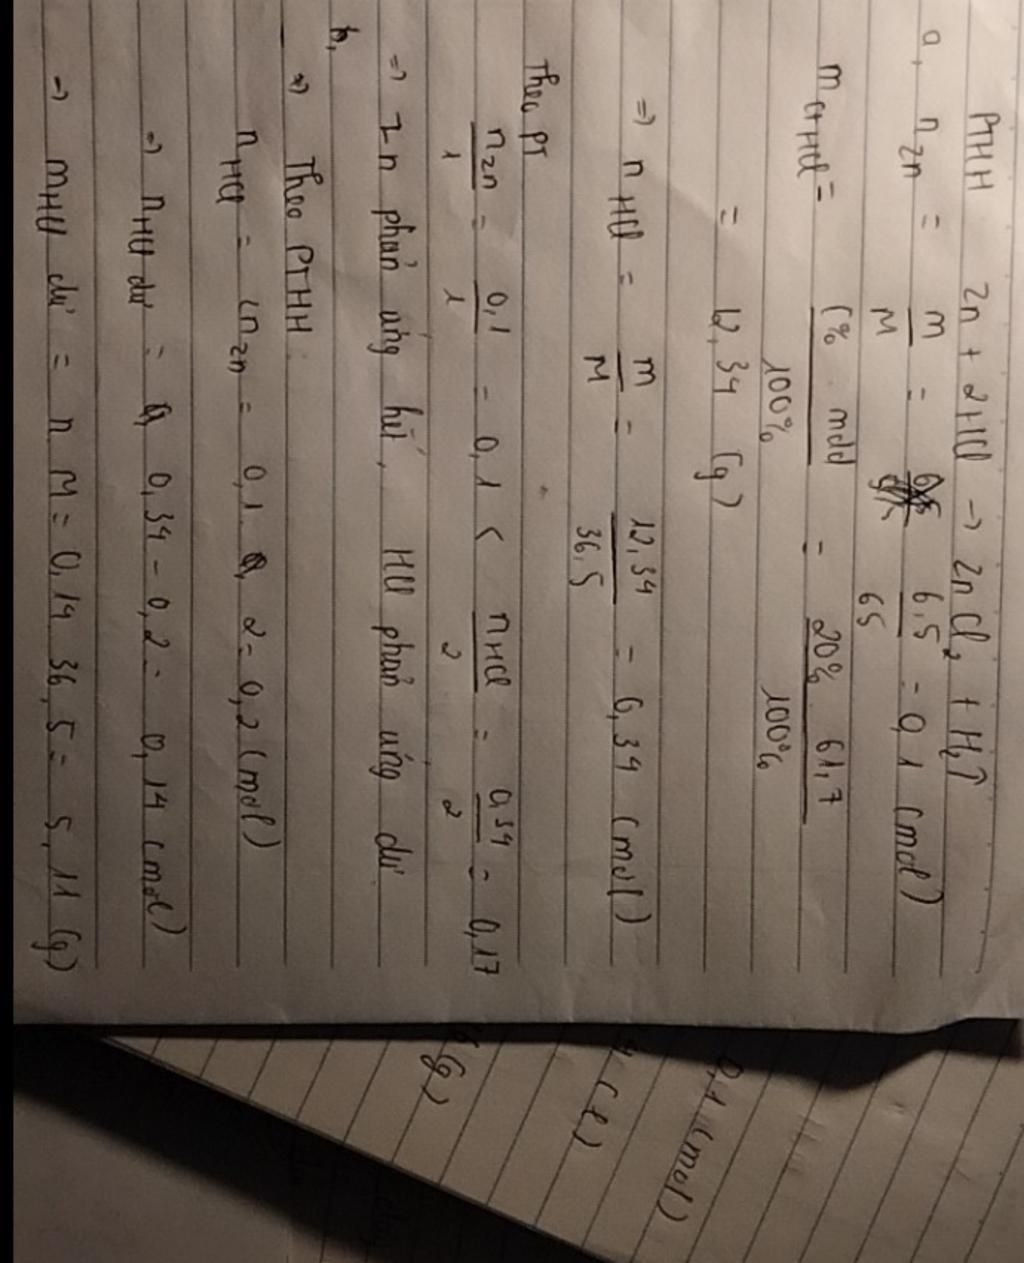 PTHH Zn + 2HCl → ZnCl₂ + H₂↑
a, n Zn = m/M = 6,5/65 = 0,1 (mol)
m ct HCl = C% . mdd / 100% = 20% . 61,7 / 100%
= 12,34 (g)
=> n HCl = m/M = 12,34/36,5 = 0,34 (mol)
Theo PT
n Zn/1 = 0,1/1 = 0,1 < n HCl/2 = 0,34/2 = 0,17
=> Zn phản ứng hết, HCl phản ứng dư
b,
=> Theo PTHH:
n HCl = 2n Zn = 0,1 . 2 = 0,2 (mol)
=> n HCl dư = 0,34 - 0,2 = 0,14 (mol)
→ m HCl dư = n . M = 0,14 . 36,5 = 5,11 (g)
0,1 (mol)
(l)
(g)